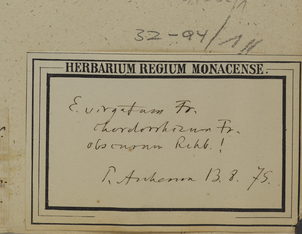 32-94/
HERBARIUM REGIUM MONACENSE.
E. virgatum Fr.
chordorrhizum Fr.
obscurum Rchb.!
13. 8. 75.